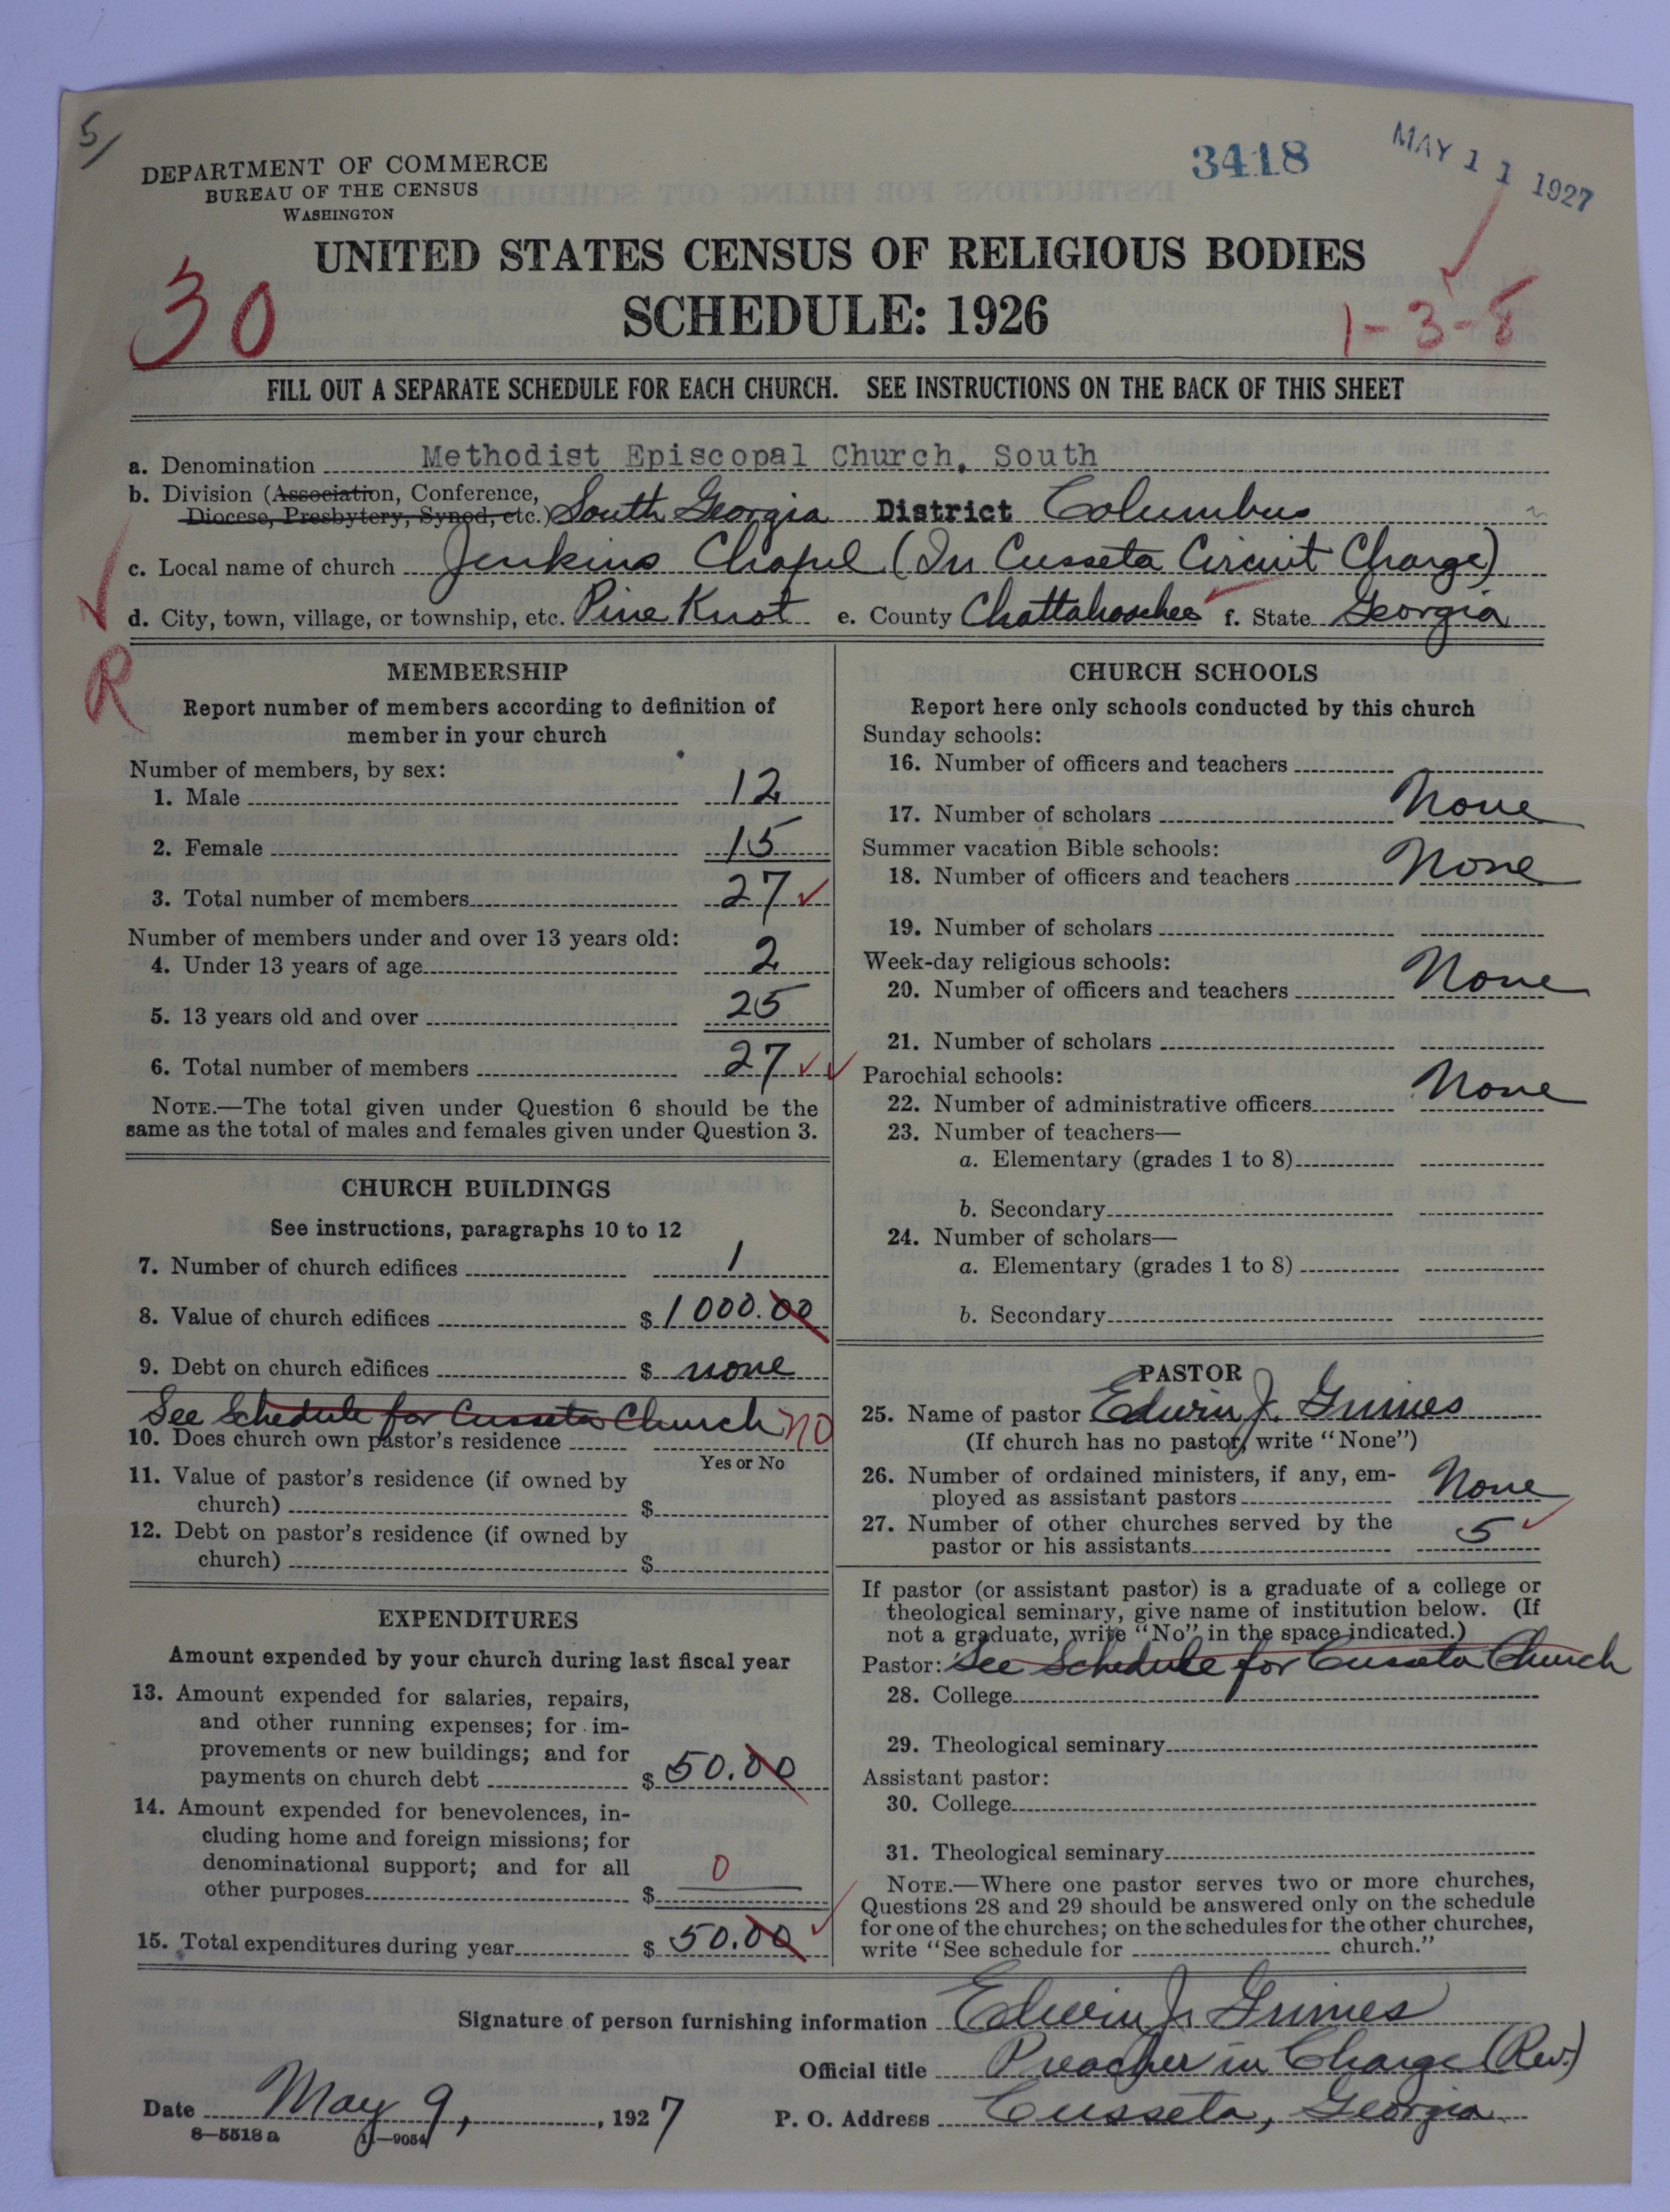 5/
DEPARTMENT OF COMMERCE
BUREAU OF THE CENSUS
WASHINGTON
3418
MAY 11 1927
UNITED STATES CENSUS OF RELIGIOUS BODIES
SCHEDULE: 1926
30
1-3-8
FILL OUT A SEPARATE SCHEDULE FOR EACH CHURCH. SEE INSTRUCTIONS ON THE BACK OF THIS SHEET
a. Denomination Methodist Episcopal Church, South
b. Division (Association, Conference,
Diocese, Presbytery, Synod, etc.) South Georgia District Columbus
c. Local name of church Jenkins Chapel (In Cusseta Circuit Charge)
d. City, town, village, or township, etc. Pine Knot e. County Chattahoochee f. State Georgia
R
MEMBERSHIP
Report number of members according to definition of
member in your church
Number of members, by sex:
1. Male 12
2. Female 15
3. Total number of members 27
Number of members under and over 13 years old:
4. Under 13 years of age 2
5. 13 years old and over 25
6. Total number of members 27
NOTE.—The total given under Question 6 should be the
same as the total of males and females given under Question 3.
CHURCH BUILDINGS
See instructions, paragraphs 10 to 12
7. Number of church edifices 1
8. Value of church edifices $ 1000.00
9. Debt on church edifices $ none
See Schedule for Cusseta Church no
10. Does church own pastor's residence
Yes or No
11. Value of pastor's residence (if owned by
church) $
12. Debt on pastor's residence (if owned by
church) $
EXPENDITURES
Amount expended by your church during last fiscal year
13. Amount expended for salaries, repairs,
and other running expenses; for im-
provements or new buildings; and for
payments on church debt $ 50.00
14. Amount expended for benevolences, in-
cluding home and foreign missions; for
denominational support; and for all
other purposes $ 0
15. Total expenditures during year $ 50.00
CHURCH SCHOOLS
Report here only schools conducted by this church
Sunday schools:
16. Number of officers and teachers
17. Number of scholars None
Summer vacation Bible schools:
18. Number of officers and teachers None
19. Number of scholars
Week-day religious schools:
20. Number of officers and teachers None
21. Number of scholars
Parochial schools:
22. Number of administrative officers None
23. Number of teachers—
a. Elementary (grades 1 to 8)
b. Secondary
24. Number of scholars—
a. Elementary (grades 1 to 8)
b. Secondary
PASTOR
25. Name of pastor Edwin J. Grimes
(If church has no pastor, write "None")
26. Number of ordained ministers, if any, em-
ployed as assistant pastors None
27. Number of other churches served by the
pastor or his assistants 5
If pastor (or assistant pastor) is a graduate of a college or
theological seminary, give name of institution below. (If
not a graduate, write "No" in the space indicated.)
Pastor: See Schedule for Cusseta Church
28. College
29. Theological seminary
Assistant pastor:
30. College
31. Theological seminary
NOTE.—Where one pastor serves two or more churches,
Questions 28 and 29 should be answered only on the schedule
for one of the churches; on the schedules for the other churches,
write "See schedule for church."
Signature of person furnishing information Edwin J. Grimes
Official title Preacher in Charge (Rev.)
Date May 9, 1927 P. O. Address Cusseta, Georgia
8—5518 a 11—9054